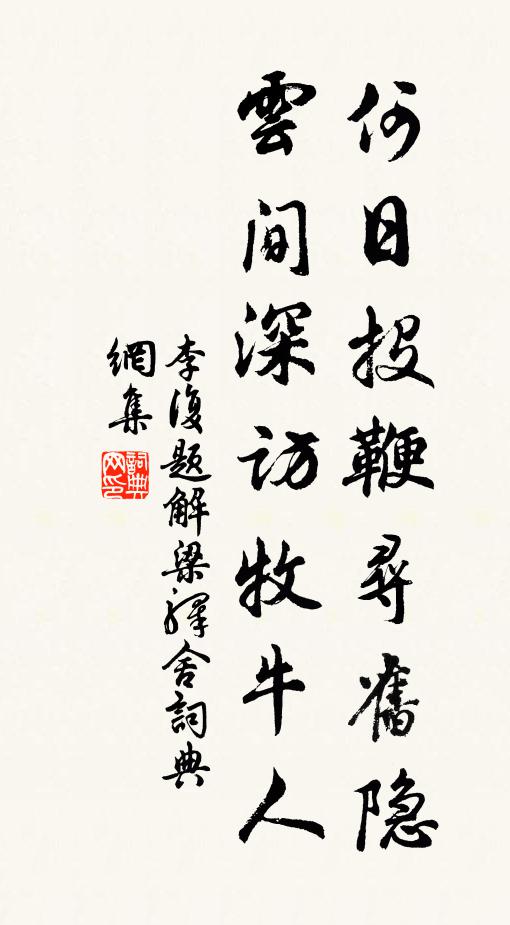 何日投鞭尋舊隐
雲间深访牧牛人
李復题解梁驛舍詞典
網集
詞典
网印